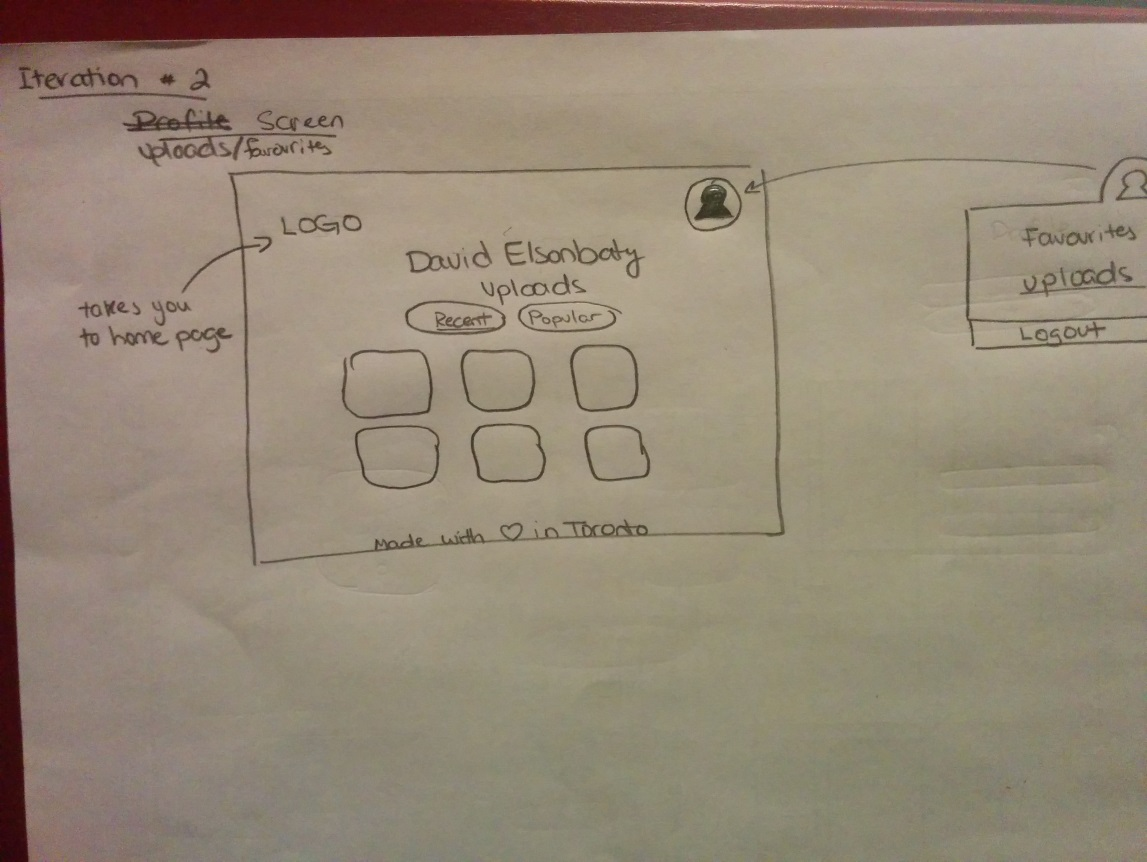 Iteration # 2
Profile Screen
uploads/favourites
LOGO
takes you
to home page
David Elsonbaty
uploads
Recent Popular
Made with ♡ in Toronto
Favourites
uploads
Logout